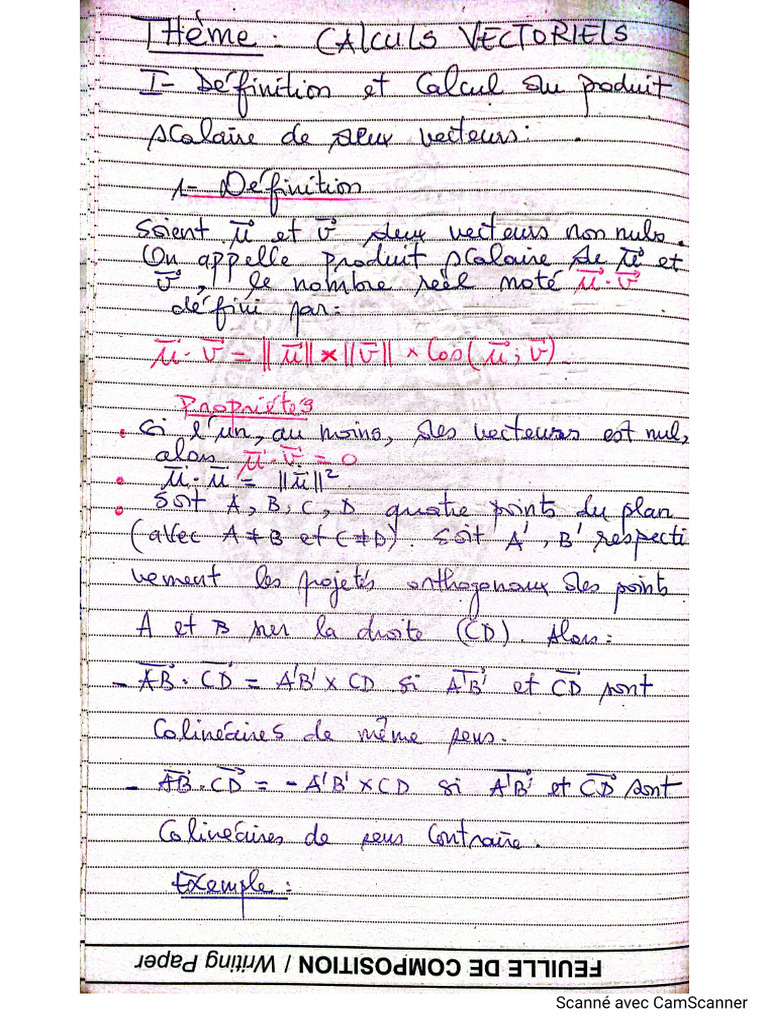 Thème : CALCULS VECTORIELS
I- Définition et Calcul du produit
scalaire de deux vecteurs :
1- Définition
Soient u⃗ et v⃗ deux vecteurs non nuls.
On appelle produit scalaire de u⃗ et
v⃗, le nombre réel noté u⃗·v⃗
défini par:
u⃗·v⃗ = ||u⃗|| × ||v⃗|| × Cos(u⃗; v⃗).
Propriétés
• Si l'un, au moins, des vecteurs est nul,
alors u⃗·v⃗ = 0
• u⃗·u⃗ = ||u⃗||²
• Soit A, B, C, D quatre points du plan
(avec A≠B et C≠D). Soit A', B' respecti
vement les projetés orthogonaux des points
A et B sur la droite (CD). Alors :
- AB⃗·CD⃗ = A'B' × CD si A'B'⃗ et CD⃗ sont
Colinéaires de même sens.
- AB⃗·CD⃗ = - A'B' × CD si A'B'⃗ et CD⃗ sont
Colinéaires de sens Contraire.
Exemple :
FEUILLE DE COMPOSITION / Writing Paper
Scanné avec CamScanner